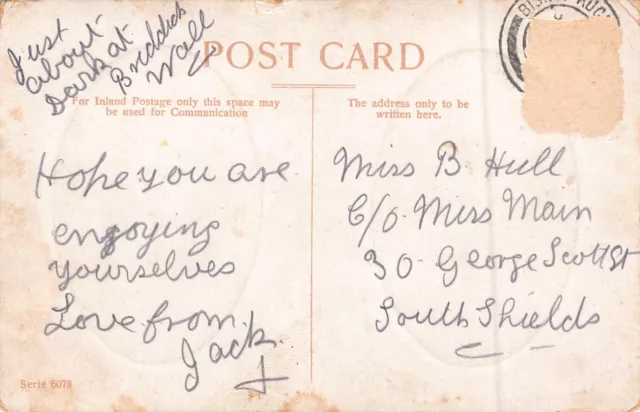 Just
about
dark at
Briddick
Wall
POST CARD
For Inland Postage only this space may
be used for Communication
The address only to be
written here.
Hope you are
engoying
yourselves
Love from
Jack.
Miss B Hull
C/o Miss Main
30 George Scott St
South Shields
Serie 6078